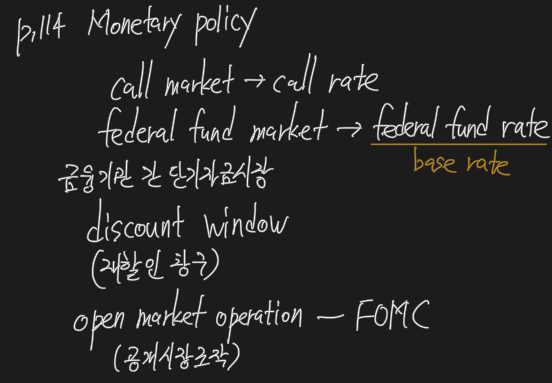 p.114 Monetary policy
call market → call rate
federal fund market → federal fund rate
base rate
금융기관 간 단기자금시장
discount window
(재할인 창구)
open market operation — FOMC
(공개시장조작)